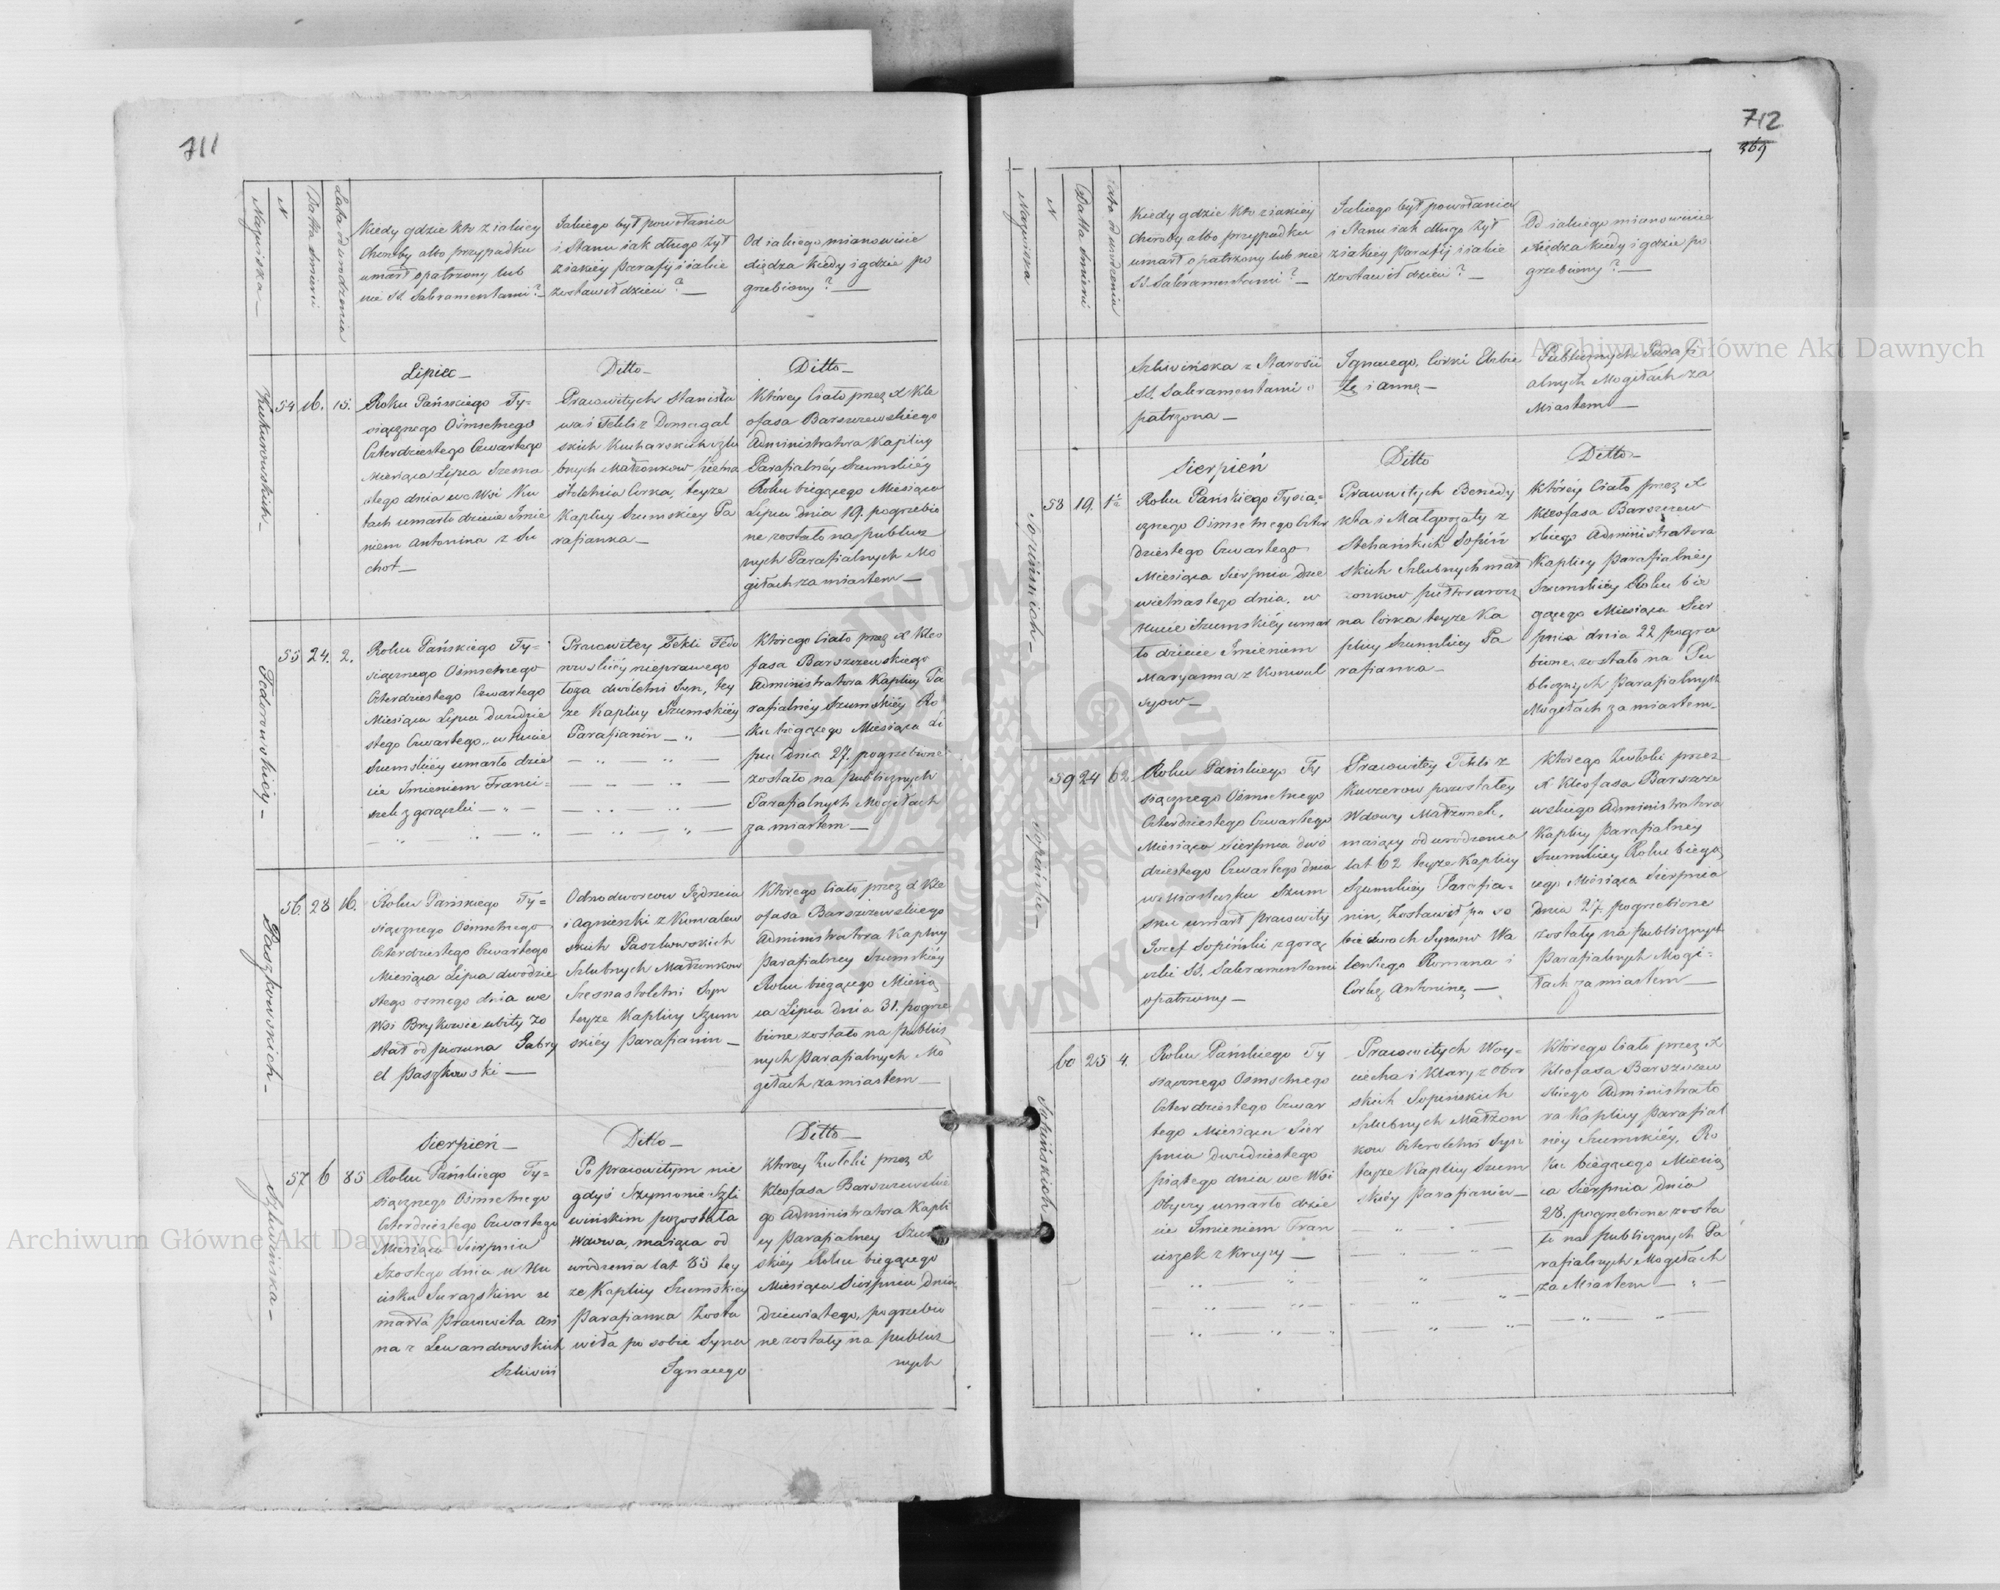 711
Nazwiska
N
Datta śmierci
Lata od urodzenia
Kiedy gdzie kto z iakiey
Choroby albo przypadku
umarł opatrzony lub
nie SS. Sakramentami? —
Jakiego był powołania
i Stanu iak długo żył
z iakiey Parafij i iakie
zostawił dzieci? —
Od iakiego mianowicie
Xiędza kiedy i gdzie po
grzebiony? —
54
16.
15.
Lipiec —
Roku Pańskiego Ty=
siącznego Ośmsetnego
Czterdziestego Czwartego
Miesiąca Lipca Szesna
stego dnia we Wsi Ku
tach umarło dziecie Jmie
niem Antonina z Su
chot —
Ditto —
Pracowitych Stanisła
wa i Tekli z Domagal
skich
bnych Małżonkow
stoletnia Corka, teyże
Kaplicy Szumskiey Pa
rafianka —
Ditto —
Którey Ciało przez X Kle
ofasa Barszczewskiego
Administratora Kaplicy
Parafialnéy Szumskiéy
Roku biegącego Miesiąca
Lipca dnia 19. pogrzebio
ne zostało na publicz
nych Parafialnych Mo
giłach za miastem —
Fedorowskiey —
55
24.
2.
Roku Pańskiego Ty=
siącznego Ośmsetnego
Czterdziestego Czwartego
Miesiąca Lipca dwudzie
stego Czwartego,
Szumskiéy umarło dzie
cie Jmieniem Franci=
szek z gorączki —
Pracowitey Tekli Fedo
rowskiéy nieprawego
łoża dwóletni Syn, tey
że Kaplicy Szumskiéy
Parafianin —
Którego Ciało przez X Kleo
fasa Barszczewskiego
Administratora Kaplicy Pa
rafialnéy Szumskiéy Ro
ku biegącego Miesiąca Li
pca dnia 27. pogrzebione
zostało na publicznych
Parafialnych Mogiłach
za miastem —
Paszkowskich —
56.
28
16.
Roku Pańskiego Ty=
siącznego Ośmsetnego
Czterdziestego Czwartego
Miesiąca Lipca dwódzie
stego osmego dnia we
Wsi Brykowie ubity zo
stał od piozuna Gabry
el Paszkowski —
Odnodworcow Jędrzeia
i Agnieszki z Kowalew
skich Paszkowskich
Szlubnych Małżonkow
Szesnastoletni Syn
teyże Kaplicy Szum
skiéy Parafianin —
Którego Ciało przez X Kle
ofasa Barszczewskiego
Administratora Kaplicy
Parafialney Szumskiéy
Roku biegącego Miesią
ca Lipca dnia 31. pogrze
bione zostało na publicz
nych Parafialnych Mo
giłach za miastem —
57
6
85
Sierpień —
Roku Pańskiego Ty=
siącznego Ośmsetnego
Czterdziestego Czwartego
Miesiąca Sierpnia
Szostego dnia w
u
marła Pracowita An
na z Lewandowskich
Szliwiń
Ditto —
Po pracowitym nie
gdyś Szymonie Szli
wińskim pozostała
Wdowa, maiąca od
urodzenia lat 85 tey
że Kaplicy Szumskiey
Parafianka Zosta
wiła po sobie Syna
Ignacego
Ditto —
Ktorey Zwłoki przez X
Kleofasa Barszczewskie
go Administratora Kapli
cy Parafialney Szum
skiéy Roku biegącego
Miesiąca Sierpnia dnia
dziewiątego, pogrzebio
ne zostały na publicz
nych
712
369
Nazwiska
N
Datta śmierci
Lata od urodzenia
Kiedy gdzie kto z iakiey
Choroby albo przypadku
umarł opatrzony lub nie
SS. Sakramentami? —
Jakiego był powołania
i Stanu iak długo żył
z iakiey Parafij i iakie
zostawił dzieci? —
Od iakiego mianowicie
Xiędza kiedy i gdzie po
grzebiony? —
Szliwińska z Starości
SS. Sakramentami o
patrzona —
Ignacego, Corki Elżbie
tę i annę —
Publicznych Parafi
alnych Mogiłach za
Miastem —
58
19.
Sierpień
Roku Pańskiego Tysią=
cznego Ośmsetnego Czter
dziestego Czwartego
Miesiąca Sierpnia dzie
wietnastego dnia, w
Szumskiéy umar
ło dziecie Jmieniem
Maryanna z Konwul
syow —
Ditto
Pracowitych Benedy
kta i Małgorzaty z
Stehańskich Sopiń
skich Szlubnych mał
żonkow pułtorarocz
na Córka teyże Ka
plicy Szumskiey Pa
rafianka —
Ditto —
Którey Ciało przez X
Kleofasa Barszczew
skiego Administratora
Kaplicy Parafialnéy
Szumskiéy Roku bie
gącego Miesiąca Sier
pnia dnia 22 pogrze
bione, zostało na Pu
blicznych Parafialnych
Mogiłach za miastem —
59
24
62
Roku Pańskiego Ty
siącznego Ośmsetnego
Czterdziestego Czwartego
Miesiąca Sierpnia dwó
dziestego Czwartego dnia
w Miasteczku Szum
sku umarł Pracowity
Jozef Sopiński z gorą
czki SS. Sakramentami
opatrzony —
Pracowitey Tekli z
Kuczerow pozostałey
Wdowy Małżonek,
maiący od urodzenia
lat 62 teyże Kaplicy
Szumskiey Parafia=
nin, Zostawił po so
bie dwoch Synow Wa
lentego Romana i
Corkę Antoninę —
Którego Zwłoki przez
X Kleofasa Barszcze
wskiego Administratora
Kaplicy Parafialney
Szumskiey Roku biegą
cego Miesiąca Sierpnia
dnia 27. pogrzebione
zostały na publicznych
Parafialnych Mogi=
łach za miastem —
60
25
4.
Roku Pańskiego Ty
siącznego Ośmsetnego
Czterdziestego Czwar
tego Miesiąca Sier
pnia dwudziestego
piątego dnia we Wsi
Obycy umarło dzie
cie Jmieniem Fran
ciszek z Krupy —
Pracowitych Woy=
ciecha i Klary z Obor
skich Sopińskich
Szlubnych Małżon
kow Czteroletni Syn
teyże Kaplicy Szum
skiéy Parafianin —
Którego Ciało przez X
Kleofasa Barszczew
skiego Administrato
ra Kaplicy Parafial
ney Szumskiéy, Ro
ku biegącego Miesią
ca Sierpnia dnia
28. pogrzebione zosta
ło na publicznych Pa
rafialnych Mogiłach
za Miastem —
Archiwum Główne Akt Dawnych
Archiwum Główne Akt Dawnych